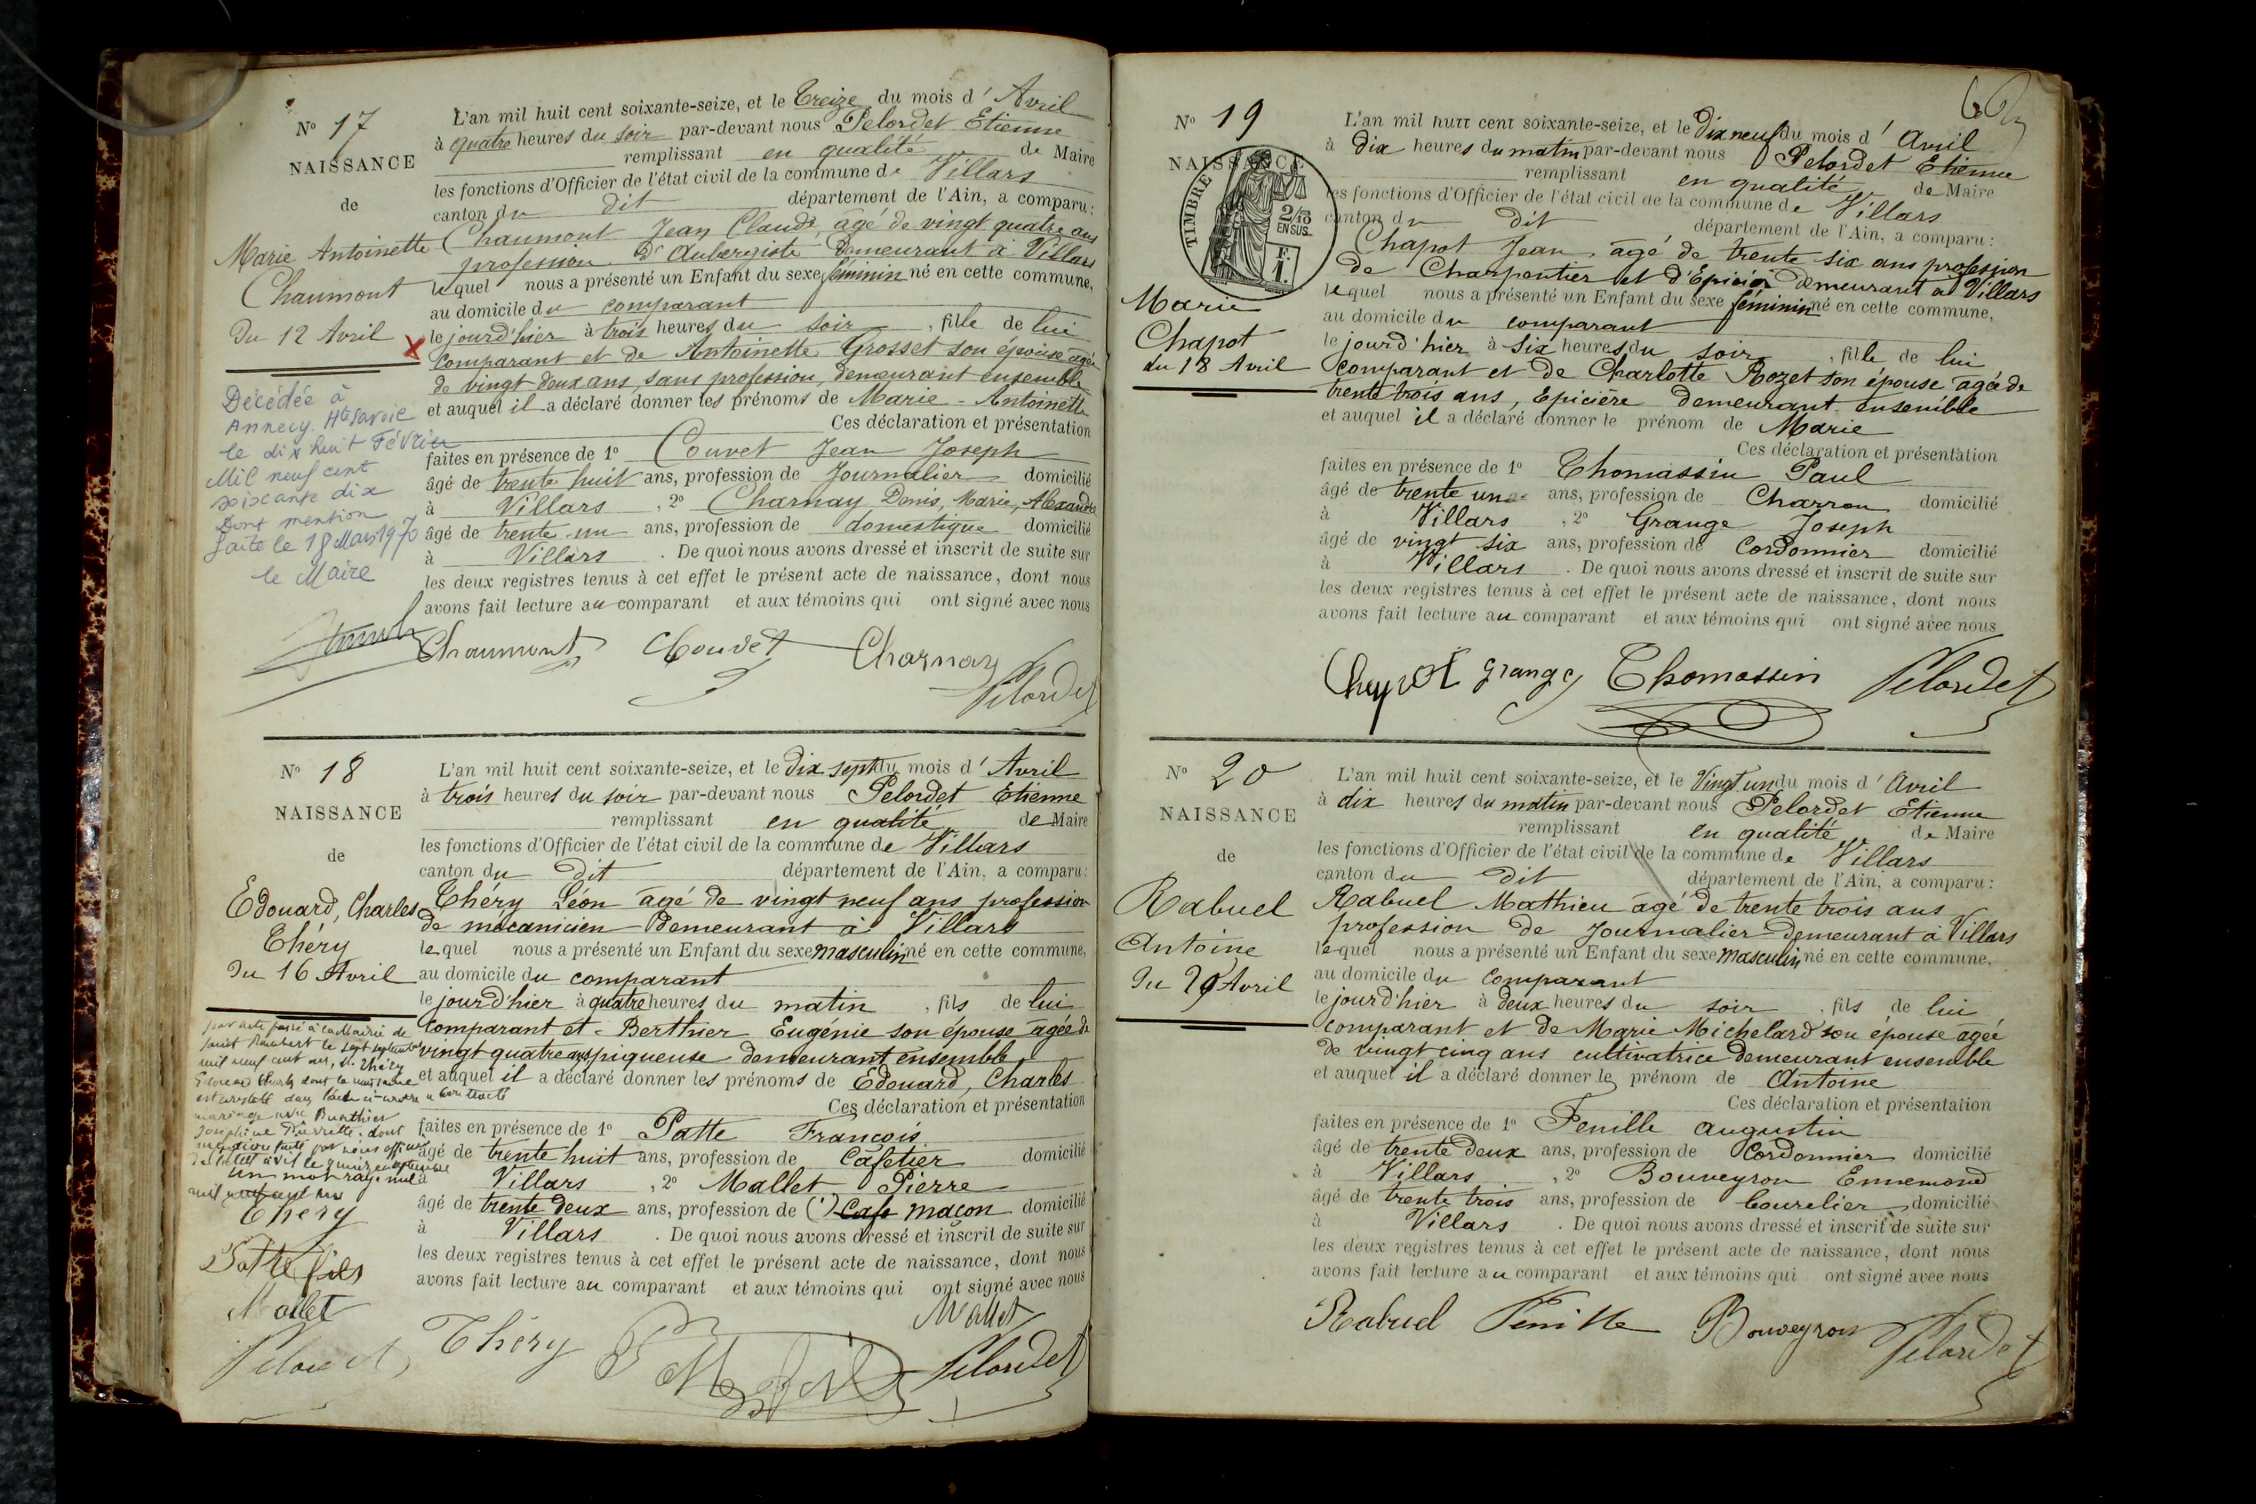 N° 17
NAISSANCE
de
Marie Antoinette
Chaumont
Du 12 Avril
X
Décédée à
Annecy. Hte Savoie
le dix huit Février
Mil neuf cent
soixante dix
Dont mention
faite le 18 Mars 1970
le Maire
L'an mil huit cent soixante-seize, et le Treize du mois d' Avril
à quatre heures du soir par-devant nous Pelordet Etienne
remplissant en qualité de Maire
les fonctions d'Officier de l'état civil de la commune de Villars
canton du dit département de l'Ain, a comparu:
Chaumont Jean Claude, âgé de vingt quatre ans
profession d'Aubergiste Demeurant à Villars
lequel nous a présenté un Enfant du sexe féminin né en cette commune,
au domicile du comparant
le jourd'hier à trois heures du soir, fille de lui
comparant et de Antoinette Grosset son épouse agée
de vingt deux ans, sans profession, demeurant ensemble
et auquel il a déclaré donner les prénoms de Marie-Antoinette
Ces déclaration et présentation
faites en présence de 1° Couvet Jean Joseph
âgé de trente huit ans, profession de Journalier domicilié
à Villars, 2° Charnay Denis, Marie, Alexandre
âgé de trente un ans, profession de domestique domicilié
à Villars. De quoi nous avons dressé et inscrit de suite sur
les deux registres tenus à cet effet le présent acte de naissance, dont nous
avons fait lecture au comparant et aux témoins qui ont signé avec nous
Chaumont Couvet Charnay
Pelordet
N° 18
NAISSANCE
de
Edouard, Charles
Théry
Du 16 Avril
par acte passé à la Mairie de
Saint Rambert le sept septembre
mil neuf cent
Edouard Charles dont la naissance
mariage avec Berthier
Joséphine Pierrette. dont
mention faite par nous officier
de l'état civil le quinze septembre
un mot rayé nul
mil neuf cent
Théry
Patte fils
Mallet
Pelordet
L'an mil huit cent soixante-seize, et le dix sept du mois d' Avril
à trois heures du soir par-devant nous Pelordet Etienne
remplissant en qualité de Maire
les fonctions d'Officier de l'état civil de la commune de Villars
canton du dit département de l'Ain, a comparu:
Théry Léon âgé de vingt neuf ans profession
de mécanicien demeurant à Villars
lequel nous a présenté un Enfant du sexe masculin né en cette commune,
au domicile du comparant
le jourd'hier à quatre heures du matin, fils de lui
comparant et Berthier Eugénie son épouse agée de
vingt quatre ans piqueuse demeurant ensemble
et auquel il a déclaré donner les prénoms de Edouard, Charles
Ces déclaration et présentation
faites en présence de 1° Patte François
âgé de trente huit ans, profession de Cafetier domicilié
à Villars, 2° Mallet Pierre
âgé de trente deux ans, profession de (1) Cafe maçon domicilié
à Villars. De quoi nous avons dressé et inscrit de suite sur
les deux registres tenus à cet effet le présent acte de naissance, dont nous
avons fait lecture au comparant et aux témoins qui ont signé avec nous
Mallet
Théry Pelordet
N° 19
NAISSANCE
TIMBRE
2/10
EN SUS
F.
1.
Marie
Chapot
du 18 Avril
L'an mil huit cent soixante-seize, et le dix neuf du mois d' Avril
à dix heures du matin par-devant nous Pelordet Etienne
remplissant en qualité de Maire
les fonctions d'Officier de l'état civil de la commune de Villars
canton du dit département de l'Ain, a comparu:
Chapot Jean, âgé de trente six ans profession
de Charpentier et d'Epicier demeurant à Villars
lequel nous a présenté un Enfant du sexe féminin né en cette commune,
au domicile du comparant
le jourd'hier à six heures du soir, fille de lui
comparant et de Charlotte Rozet son épouse agée de
trente trois ans, Epicière demeurant ensemble
et auquel il a déclaré donner le prénom de Marie
Ces déclaration et présentation
faites en présence de 1° Thomassin Paul
âgé de trente un ans, profession de Charron domicilié
à Villars, 2° Grange Joseph
âgé de vingt six ans, profession de Cordonnier domicilié
à Villars. De quoi nous avons dressé et inscrit de suite sur
les deux registres tenus à cet effet le présent acte de naissance, dont nous
avons fait lecture au comparant et aux témoins qui ont signé avec nous
Chapot Grange Thomassin Pelordet
N° 20
NAISSANCE
de
Rabuel
Antoine
Du 20 Avril
L'an mil huit cent soixante-seize, et le Vingt un du mois d' Avril
à dix heures du matin par-devant nous Pelordet Etienne
remplissant en qualité de Maire
les fonctions d'Officier de l'état civil de la commune de Villars
canton du dit département de l'Ain, a comparu:
Rabuel Mathieu âgé de trente trois ans
profession de Journalier demeurant à Villars
lequel nous a présenté un Enfant du sexe masculin né en cette commune,
au domicile du comparant
le jourd'hier à deux heures du soir, fils de lui
comparant et de Marie Michelard son épouse agée
de vingt cinq ans cultivatrice demeurant ensemble
et auquel il a déclaré donner le prénom de Antoine
Ces déclaration et présentation
faites en présence de 1° Fenille Augustin
âgé de trente deux ans, profession de Cordonnier domicilié
à Villars, 2° Bouveyron Ennemond
âgé de trente trois ans, profession de Bourelier domicilié
à Villars. De quoi nous avons dressé et inscrit de suite sur
les deux registres tenus à cet effet le présent acte de naissance, dont nous
avons fait lecture au comparant et aux témoins qui ont signé avec nous
Rabuel Fenille Bouveyron Pelordet